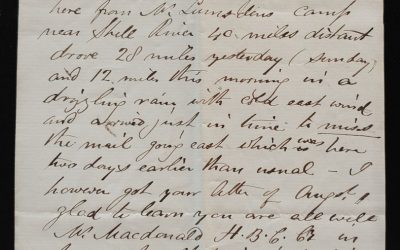 here from Mr Lumsdens camp
near Shell River 40 miles distant
drove 28 miles yesterday (Sunday)
and 12 miles this morning in a
drizzling rain with cold east wind
and arrived just in time to miss
the mail going east which was here
two days earlier than usual – I
however got your letter of Augst 1
glad to learn you are all well
Mr Macdonald H.B.C. Co in